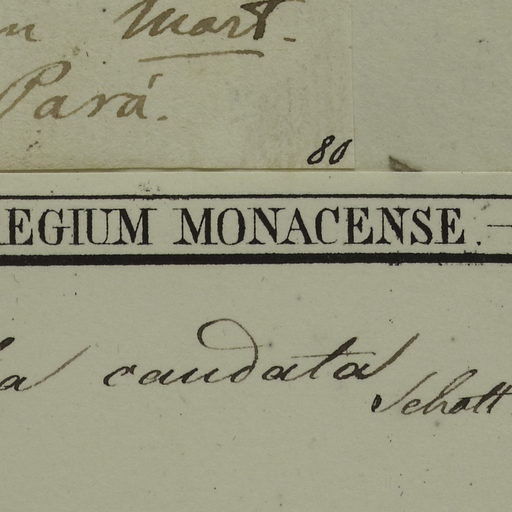 Mart.
Pará.
80
REGIUM MONACENSE.
caudata
Schott